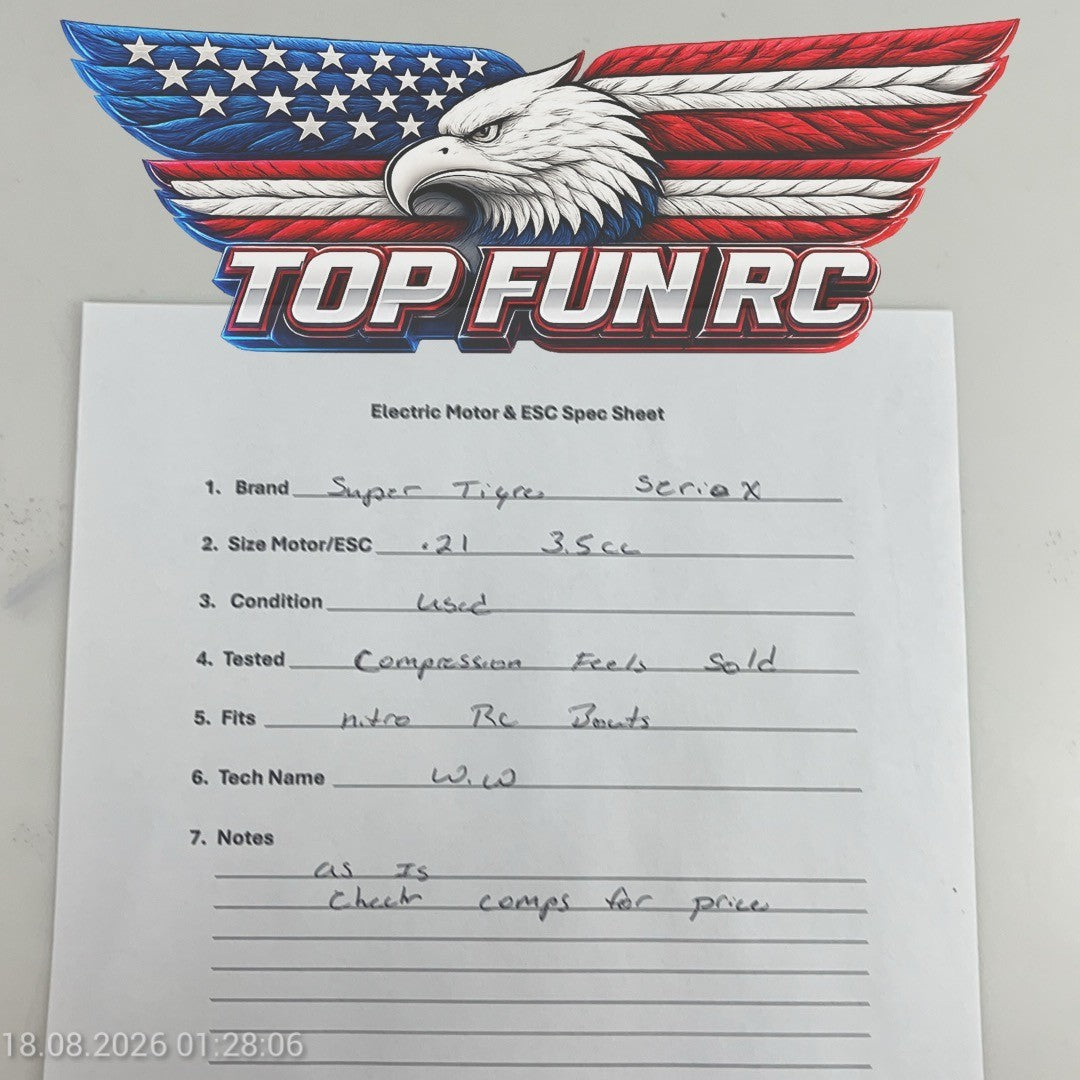 TOP FUN RC
Electric Motor & ESC Spec Sheet
1. Brand Super Tigre Serie X
2. Size Motor/ESC .21 3.5cc
3. Condition used
4. Tested Compression Feels Sold
5. Fits nitro Rc Boats
6. Tech Name W.W
7. Notes
as Is
Check comps for price
18.08.2026 01:28:06